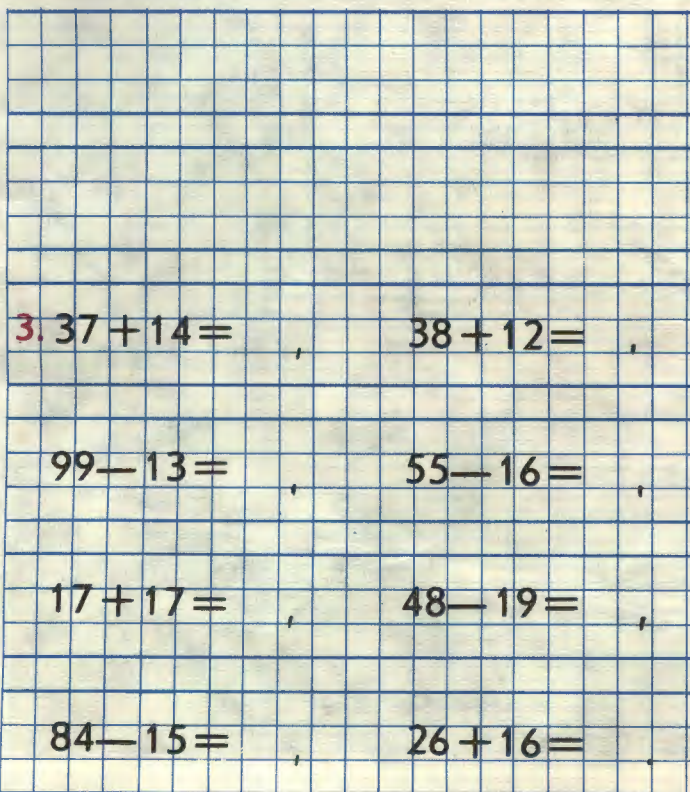 3. 37+14= , 38+12= ,
99—13= , 55—16= ,
17+17= , 48—19= ,
84—15= , 26+16= .